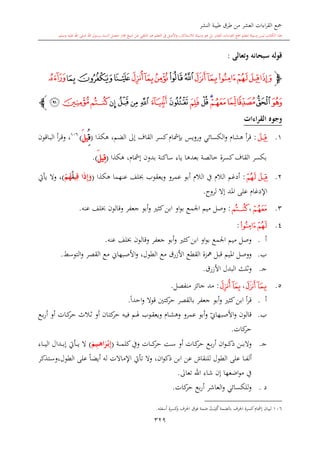 جمع القراءات العشر من طرق طيبة النشر
قوله سبحانه وتعالى :
﴿ وَإِذَا قِيلَ لَهُمْ ءَامِنُوا۟ بِمَآ أَنزَلَ ٱللَّهُ قَالُوا۟ نُؤْمِنُ بِمَآ أُنزِلَ عَلَيْنَا وَيَكْفُرُونَ بِمَا وَرَآءَهُۥ
وَهُوَ ٱلْحَقُّ مُصَدِّقًا لِّمَا مَعَهُمْ قُلْ فَلِمَ تَقْتُلُونَ أَنۢبِيَآءَ ٱللَّهِ مِن قَبْلُ إِن كُنتُم مُّؤْمِنِينَ ﴿٩١﴾ ﴾
وجوه القراءات
١. قِيلَ : قرأ هشام والكسائي ورويس بإشمام كسر القاف إلى الضم، هكذا (قِيلَ)١٠٦، وقرأ الباقون
بكسر القاف كسرة خالصة بعدها ياء ساكنة بدون إشمام، هكذا (قِيلَ).
٢. قِيلَ لَهُمْ : أدغم اللام في اللام أبو عمرو ويعقوب بخلف عنهما هكذا (وَإِذَا قِيلَ لَّهُمْ)، ولا يأتي
الإدغام على المد إلا لروح.
٣. مَعَهُمْ، كُنتُم : وصل ميم الجمع بواو ابن كثير وأبو جعفر وقالون بخلف عنه.
٤. لَهُمْ ءَامِنُوا۟ :
أ . وصل ميم الجمع بواو ابن كثير وأبو جعفر وقالون بخلف عنه.
ب. ووصل الميم قبل همزة القطع الأزرق مع الطول، والأصبهاني مع القصر والتوسط.
ج. وثلث البدل الأزرق.
٥. بِمَآ أَنزَلَ، بِمَآ أُنزِلَ : مد جائز منفصل.
أ . قرأ ابن كثير وأبو جعفر بالقصر حركتين قولا واحداً.
ب. قالون والأصبهانيّ وأبو عمرو وهشام ويعقوب لهم فيه حركتان أو ثلاث حركات أو أربع
حركات.
ج. ولابن ذكوان أربع حركات أو ست حركات وفي كلمة (إِبْرَٰهِيمَ) لا يأتي إبدال الياء
ألفا على الطول للنقاش عن ابن ذكوان، ولا تأتي الإمالات له أيضاً على الطول،وستذكر
في مواضعها إن شاء الله تعالى.
د . وللكسائي والعاشر أربع حركات.
٣٢٩